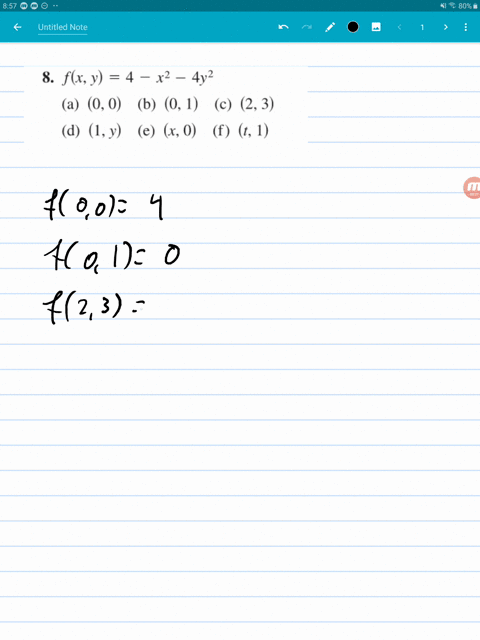 8:57 80%
Untitled Note 1
8. f(x, y) = 4 − x² − 4y²
(a) (0, 0) (b) (0, 1) (c) (2, 3)
(d) (1, y) (e) (x, 0) (f) (t, 1)
f(0,0)= 4
f(0,1)= 0
f(2,3) =